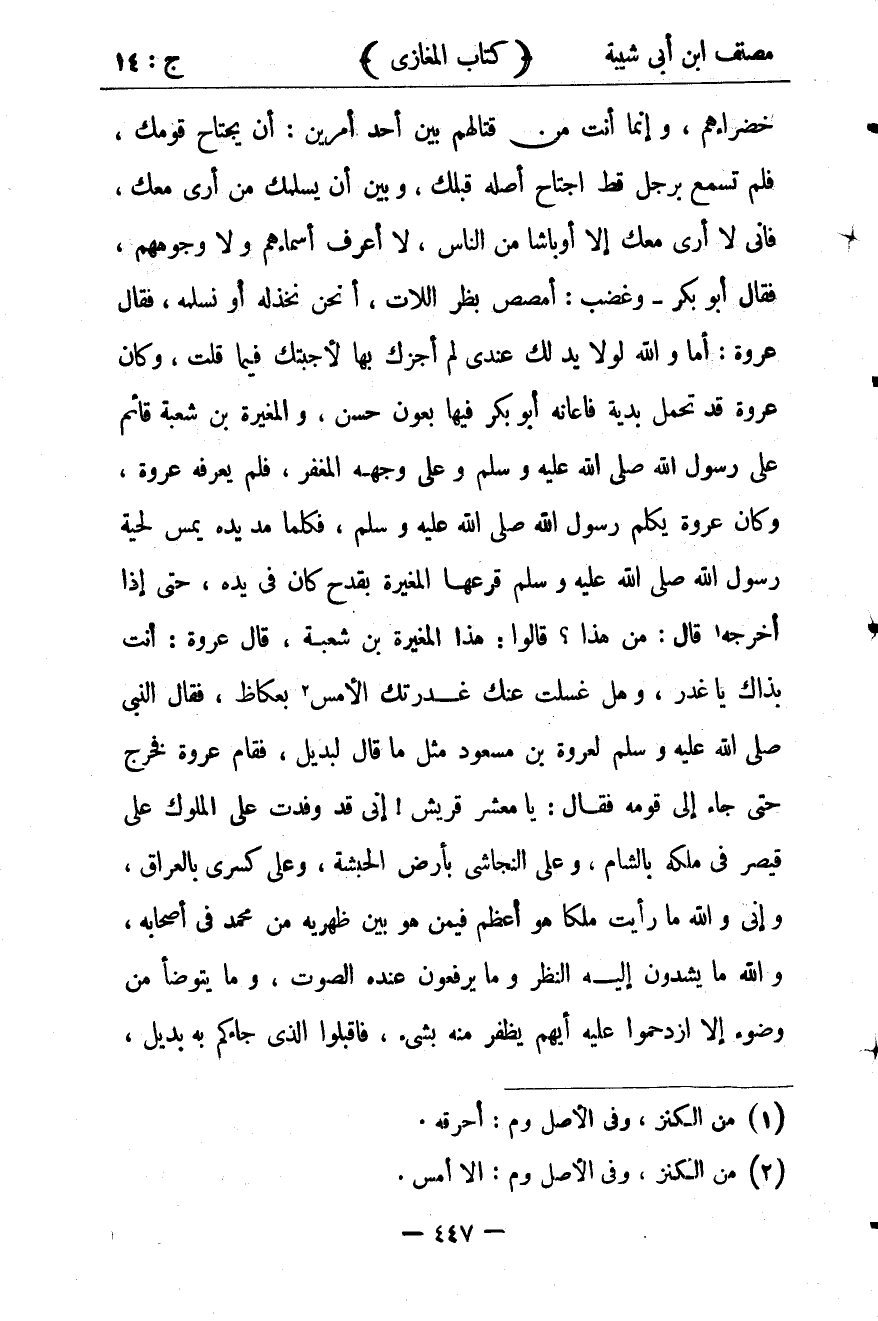 مصنف ابن أبى شيبة ﴿ كتاب المغازى ﴾ ج : ١٤
خضراءهم ، و إنما أنت من قتالهم بين أحد أمرين : أن يجتاح قومك ،
فلم تسمع برجل قط اجتاح أصله قبلك ، و بين أن يسلمك من أرى معك ،
فانى لا أرى معك إلا أوباشا من الناس ، لا أعرف أسماءهم و لا وجوههم ،
فقال أبو بكر ـ وغضب : أمصص بظر اللات ، أ نحن نخذله أو نسلمه ، فقال
عروة : أما و الله لولا يد لك عندى لم أجزك بها لأجبتك فيما قلت ، وكان
عروة قد تحمل بدية فاعانه أبو بكر فيها بعون حسن ، و المغيرة بن شعبة قائم
على رسول الله صلى الله عليه و سلم و على وجهه المغفر ، فلم يعرفه عروة ،
وكان عروة يكلم رسول الله صلى الله عليه و سلم ، فكلما مد يده يمس لحية
رسول الله صلى الله عليه و سلم قرعها المغيرة بقدح كان فى يده ، حتى إذا
أخرجه١ قال : من هذا ؟ قالوا : هذا المغيرة بن شعبة ، قال عروة : أنت
بذاك يا غدر ، و هل غسلت عنك غدرتك الأمس٢ بعكاظ ، فقال النبى
صلى الله عليه و سلم لعروة بن مسعود مثل ما قال لبديل ، فقام عروة فخرج
حتى جاء إلى قومه فقال : يا معشر قريش ! إنى قد وفدت على الملوك على
قيصر فى ملكه بالشام ، و على النجاشى بأرض الحبشة ، وعلى كسرى بالعراق ،
و إنى و الله ما رأيت ملكا هو أعظم فيمن هو بين ظهريه من محمد فى أصحابه ،
و الله ما يشدون إليه النظر و ما يرفعون عنده الصوت ، و ما يتوضأ من
وضوء إلا ازدحموا عليه أيهم يظفر منه بشىء ، فاقبلوا الذى جاءكم به بديل ،
(١) من الكنز ، وفى الأصل وم : أحرقه .
(٢) من الكنز ، وفى الأصل وم : الا أمس .
— ٤٤٧ —